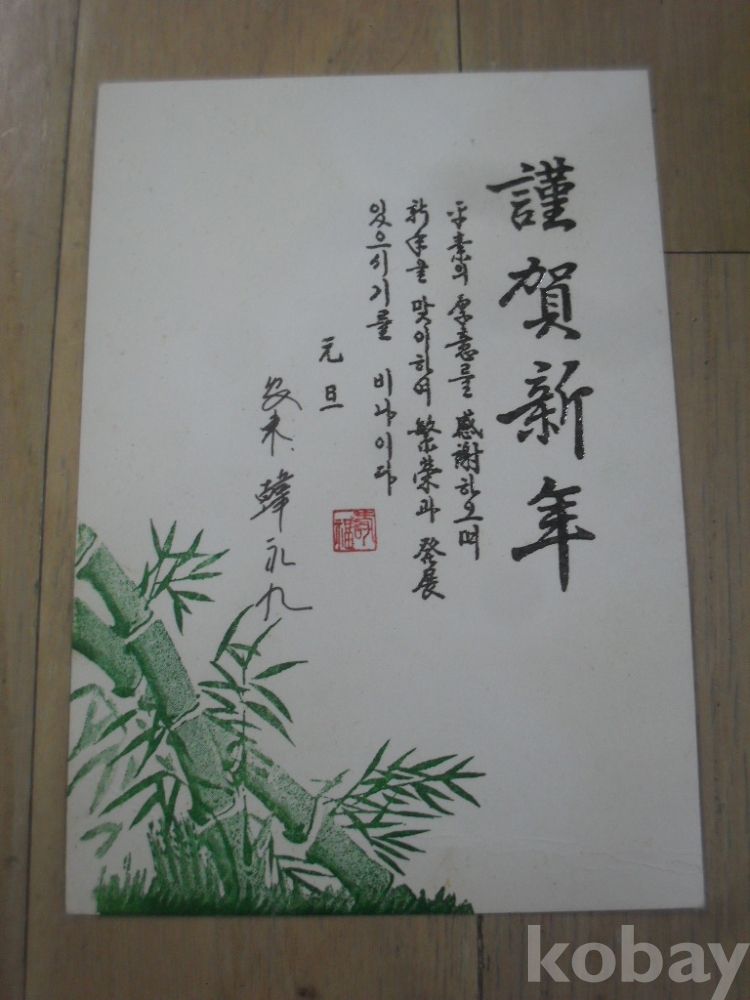 謹賀新年
平素의 厚意를 感謝하오며
新年을 맞이하여 繁榮과 發展
있으시기를 비나이다
元旦
永九
kobay